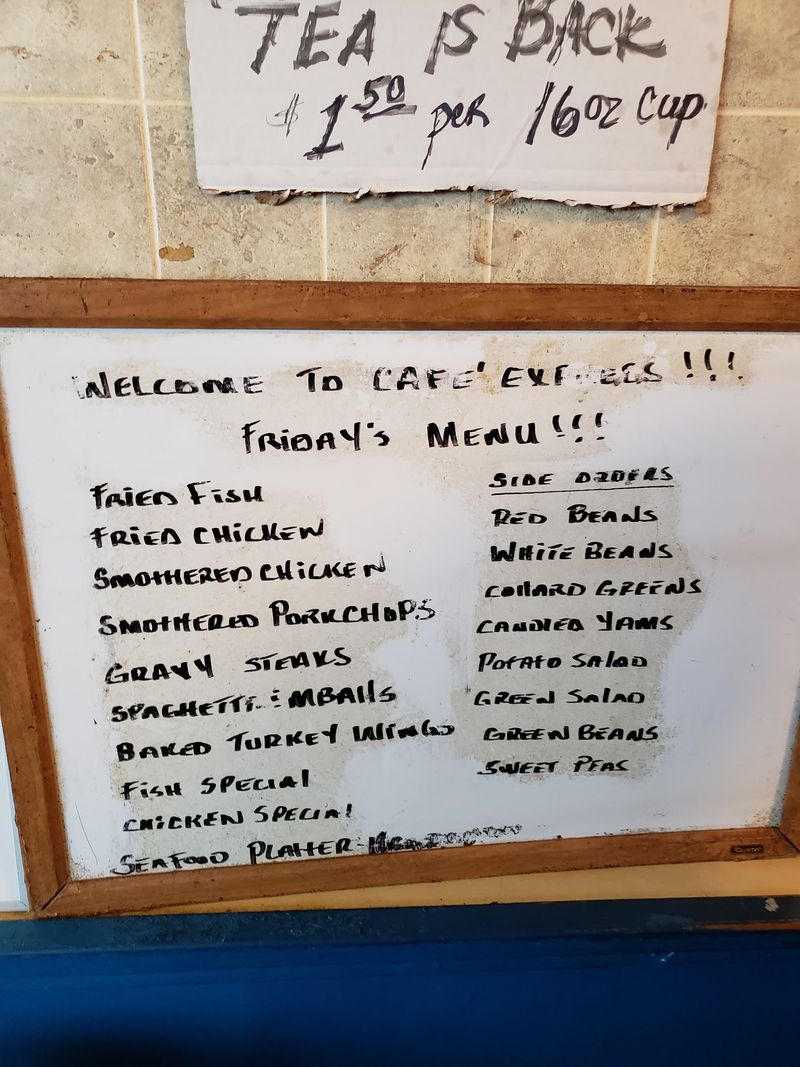 TEA IS BACK
$1.50 per 16oz Cup
WELCOME TO CAFE' EXPRESS !!!
FRIDAY'S MENU!!!
FRIED FISH
FRIED CHICKEN
SMOTHERED CHICKEN
SMOTHERED PORKCHOPS
GRAVY STEAKS
SPAGHETTI & MBALLS
BAKED TURKEY WINGS
FISH SPECIAL
CHICKEN SPECIAL
SEAFOOD PLATTER-
SIDE ORDERS
RED BEANS
WHITE BEANS
COLLARD GREENS
CANDIED YAMS
POTATO SALAD
GREEN SALAD
GREEN BEANS
SWEET PEAS